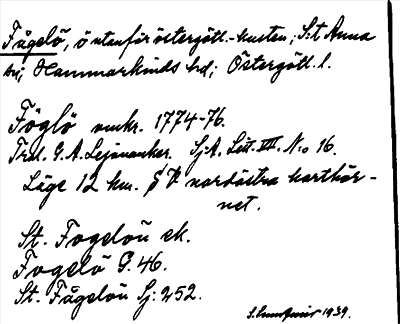 Fågelö, ö utanför östergötl.-kusten, S:t Anna
sn; Hammarkinds hd; Östergötl. l.
Föglö omkr. 1774-76.
Trol. G. A. Lejonanker. SjA. Litt. III. N:o 16.
Läge 12 km. S V nordöstra karthör-
net.
St. Fogelön ek.
Fogelö G. 46.
St. Fågelön Sj: 252.
1939.